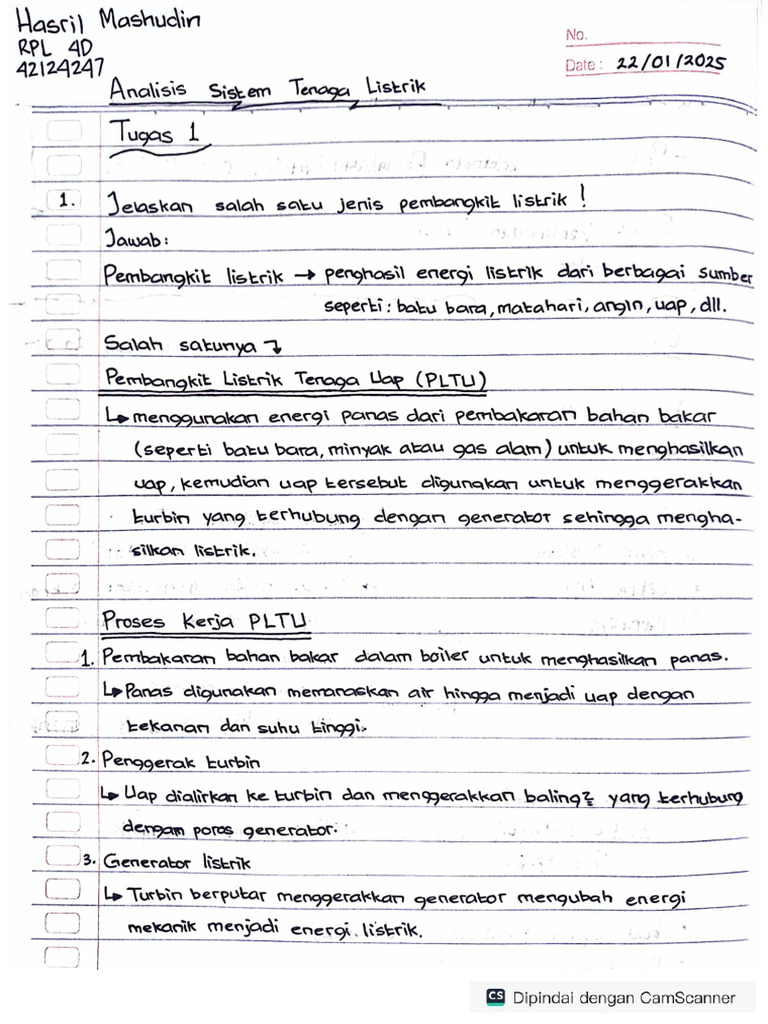 Hasril Mashudin
RPL 4D
42124247
No.
Date : 22/01/2025
Analisis Sistem Tenaga Listrik
Tugas 1
1. Jelaskan salah satu jenis pembangkit listrik !
Jawab:
Pembangkit listrik → penghasil energi listrik dari berbagai sumber
seperti : batu bara, matahari, angin, uap, dll.
Salah satunya ↴
Pembangkit Listrik Tenaga Uap (PLTU)
↳ menggunakan energi panas dari pembakaran bahan bakar
(seperti batu bara, minyak atau gas alam) untuk menghasilkan
uap, kemudian uap tersebut digunakan untuk menggerakkan
turbin yang terhubung dengan generator sehingga mengha-
silkan listrik.
Proses Kerja PLTU
1. Pembakaran bahan bakar dalam boiler untuk menghasilkan panas.
↳ Panas digunakan memanaskan air hingga menjadi uap dengan
tekanan dan suhu tinggi.
2. Penggerak turbin
↳ Uap dialirkan ke turbin dan menggerakkan baling2 yang terhubung
dengan poros generator.
3. Generator listrik
↳ Turbin berputar menggerakkan generator mengubah energi
mekanik menjadi energi listrik.
CS Dipindai dengan CamScanner